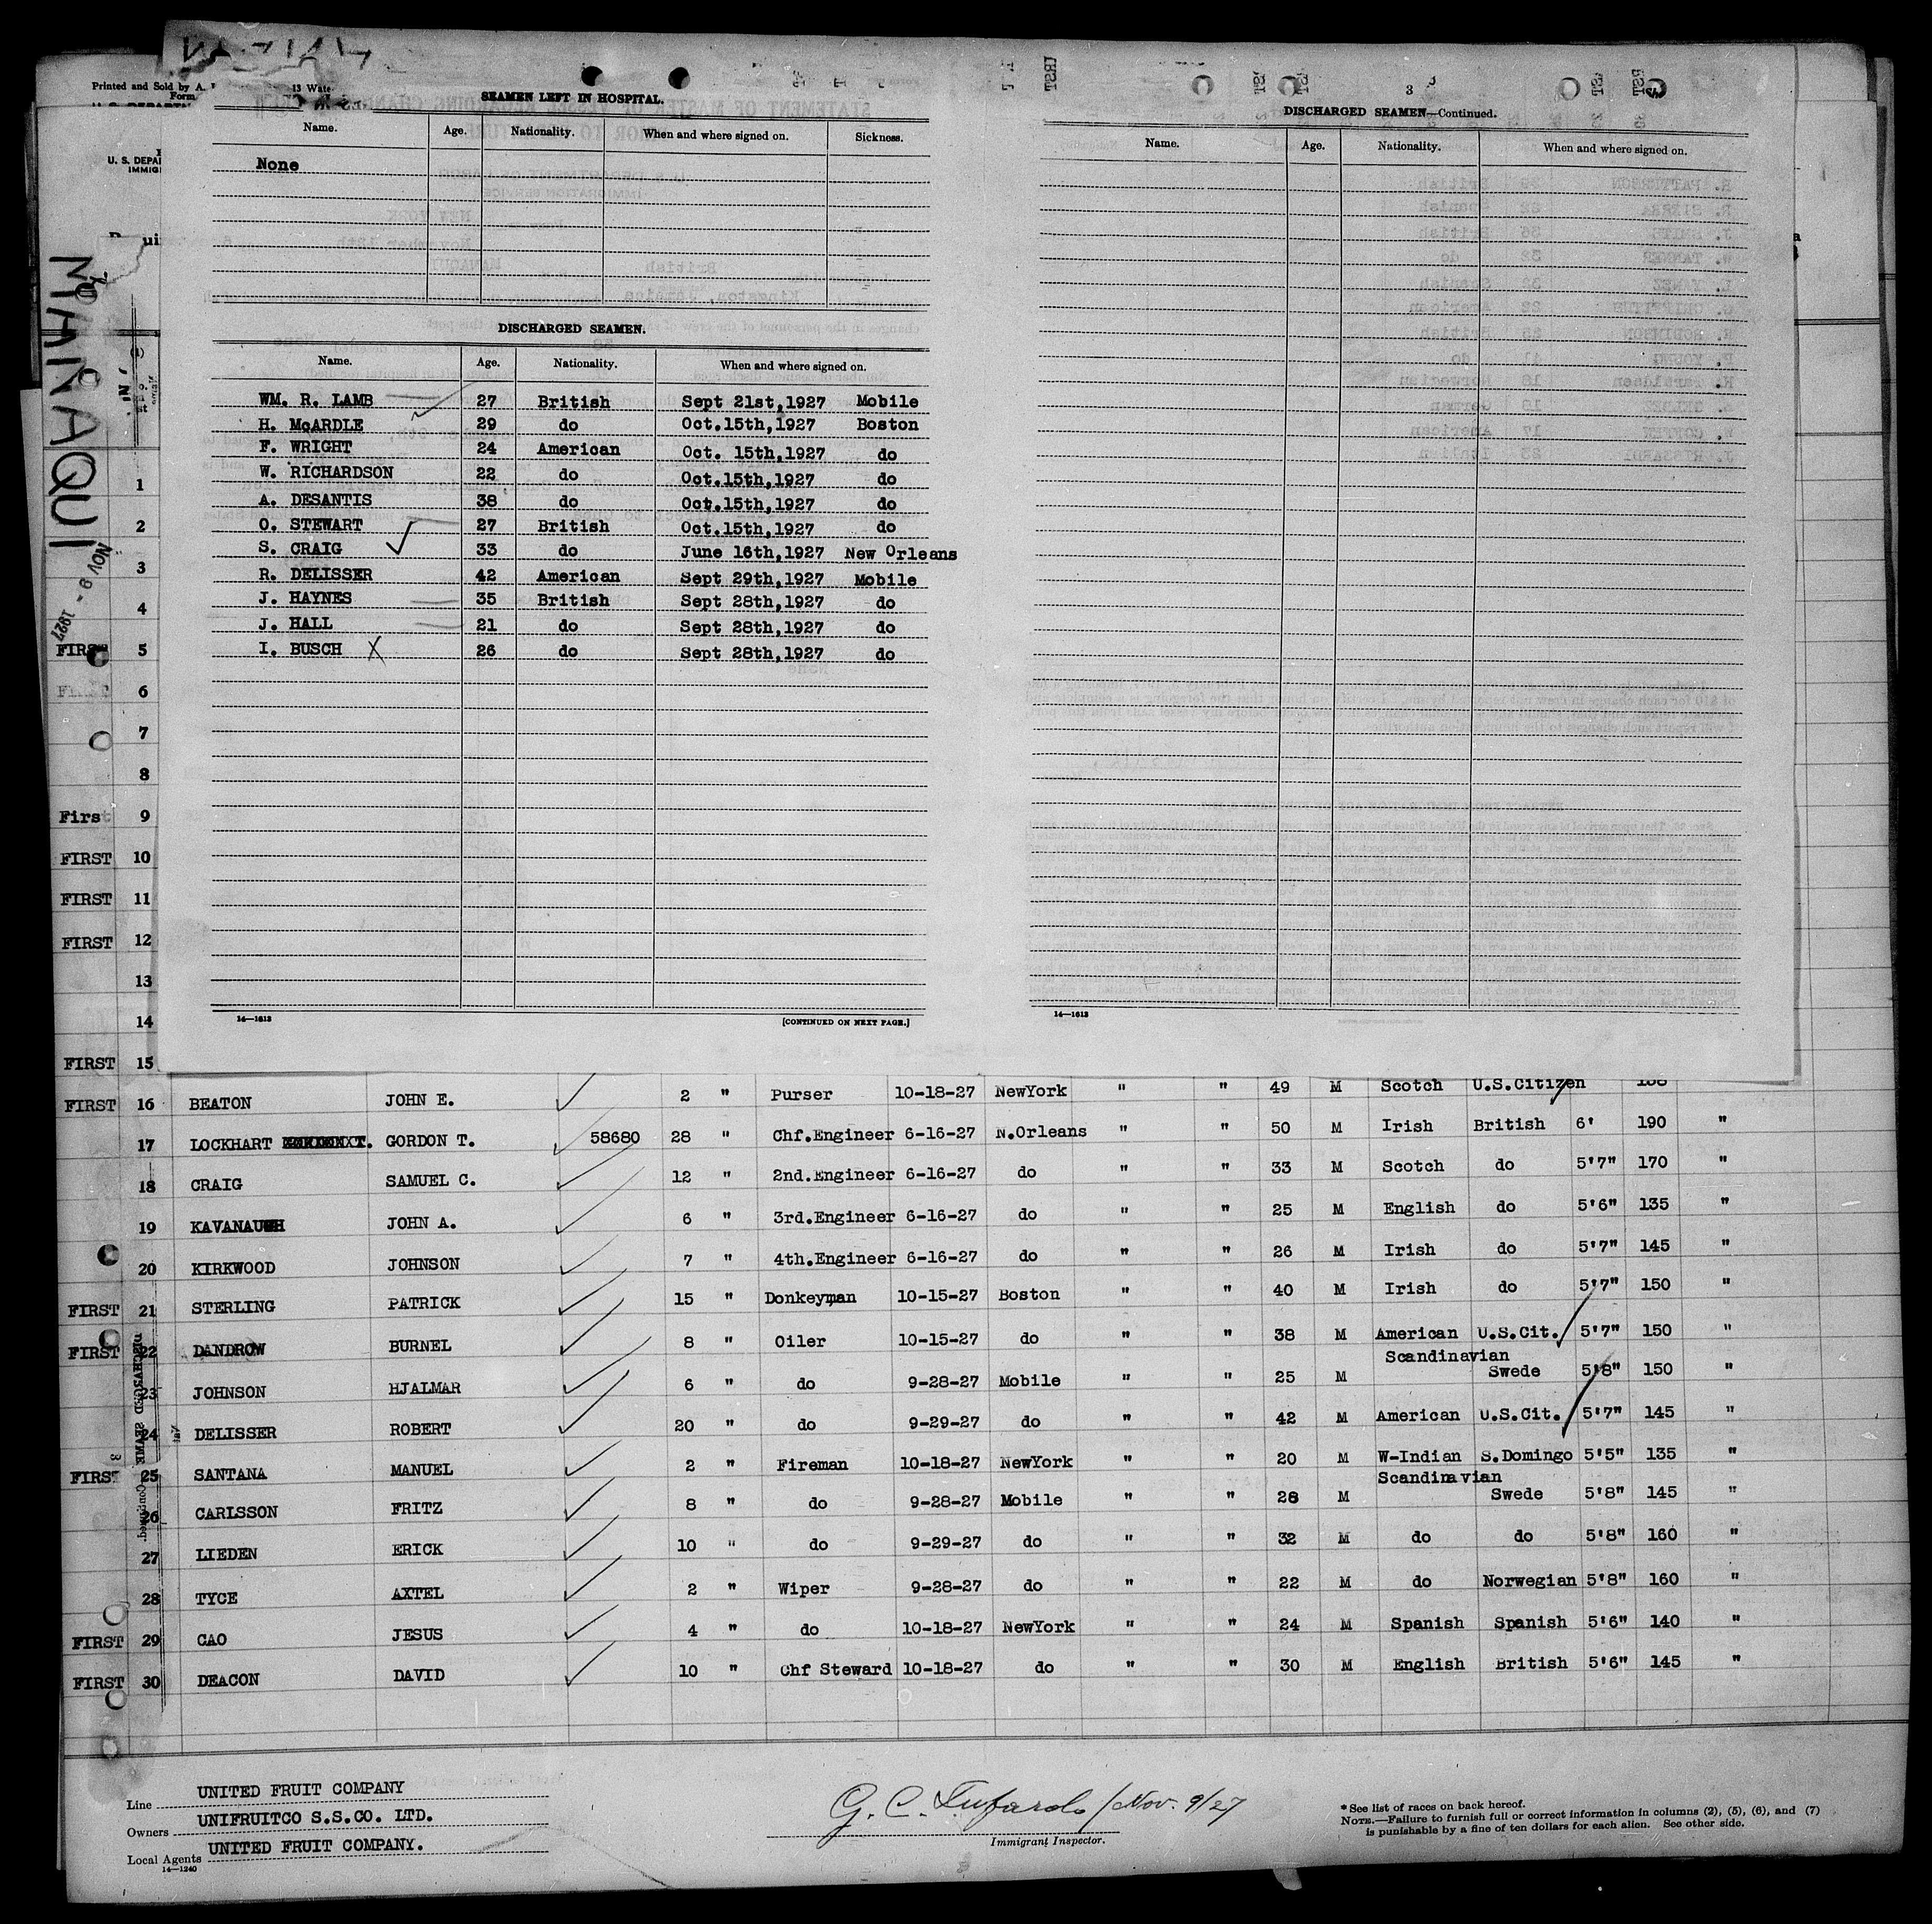 Printed and Sold by A.
Form
13 Wate
U. S. DEPA
IMMIG
MANAQUI
NOV 8 - 1927
SEAMEN LEFT IN HOSPITAL.
Name. Age. Nationality. When and where signed on. Sickness.
None
DISCHARGED SEAMEN.
Name. Age. Nationality. When and where signed on.
WM. R. LAMB 27 British Sept 21st,1927 Mobile
H. McARDLE 29 do Oct.15th,1927 Boston
F. WRIGHT 24 American Oct. 15th,1927 do
W. RICHARDSON 22 do Oct.15th,1927 do
A. DESANTIS 38 do Oct.15th,1927 do
O. STEWART 27 British Oct.15th,1927 do
S. CRAIG 33 do June 16th,1927 New Orleans
R. DELISSER 42 American Sept 29th,1927 Mobile
J. HAYNES 35 British Sept 28th,1927 do
J. HALL 21 do Sept 28th,1927 do
I. BUSCH X 26 do Sept 28th,1927 do
14—1613 [CONTINUED ON NEXT PAGE.]
3
DISCHARGED SEAMEN—Continued.
Name. Age. Nationality. When and where signed on.
14—1613
1
2
3
4
FIRST 5
6
7
8
First 9
FIRST 10
FIRST 11
FIRST 12
13
14
FIRST 15
FIRST 16 BEATON JOHN E. 2 " Purser 10-18-27 NewYork " " 49 M Scotch U.S.Citizen
17 LOCKHART GORDON T. 58680 28 " Chf.Engineer 6-16-27 N.Orleans " " 50 M Irish British 6' 190 "
18 CRAIG SAMUEL C. 12 " 2nd.Engineer 6-16-27 do " " 33 M Scotch do 5'7" 170 "
19 KAVANAUGH JOHN A. 6 " 3rd.Engineer 6-16-27 do " " 25 M English do 5'6" 135 "
20 KIRKWOOD JOHNSON 7 " 4th.Engineer 6-16-27 do " " 26 M Irish do 5'7" 145 "
FIRST 21 STERLING PATRICK 15 " Donkeyman 10-15-27 Boston " " 40 M Irish do 5'7" 150 "
FIRST 22 DANDROW BURNEL 8 " Oiler 10-15-27 do " " 38 M American U.S.Cit. 5'7" 150 "
23 JOHNSON HJALMAR 6 " do 9-28-27 Mobile " " 25 M Scandinavian Swede 5'8" 150 "
24 DELISSER ROBERT 20 " do 9-29-27 do " " 42 M American U.S.Cit. 5'7" 145 "
FIRST 25 SANTANA MANUEL 2 " Fireman 10-18-27 NewYork " " 20 M W-Indian S.Domingo 5'5" 135 "
26 CARLSSON FRITZ 8 " do 9-28-27 Mobile " " 28 M Scandinavian Swede 5'8" 145 "
27 LIEDEN ERICK 10 " do 9-29-27 do " " 32 M do do 5'8" 160 "
28 TYCE AXTEL 2 " Wiper 9-28-27 do " " 22 M do Norwegian 5'8" 160 "
FIRST 29 CAO JESUS 4 " do 10-18-27 NewYork " " 24 M Spanish Spanish 5'6" 140 "
FIRST 30 DEACON DAVID 10 " Chf Steward 10-18-27 do " " 30 M English British 5'6" 145 "
Line UNITED FRUIT COMPANY
Owners UNIFRUITCO S.S.CO. LTD.
Local Agents UNITED FRUIT COMPANY.
14—1240
G. C. Tufarolo / Nov. 9/27
Immigrant Inspector.
* See list of races on back hereof.
NOTE.—Failure to furnish full or correct information in columns (2), (5), (6), and (7)
is punishable by a fine of ten dollars for each alien. See other side.